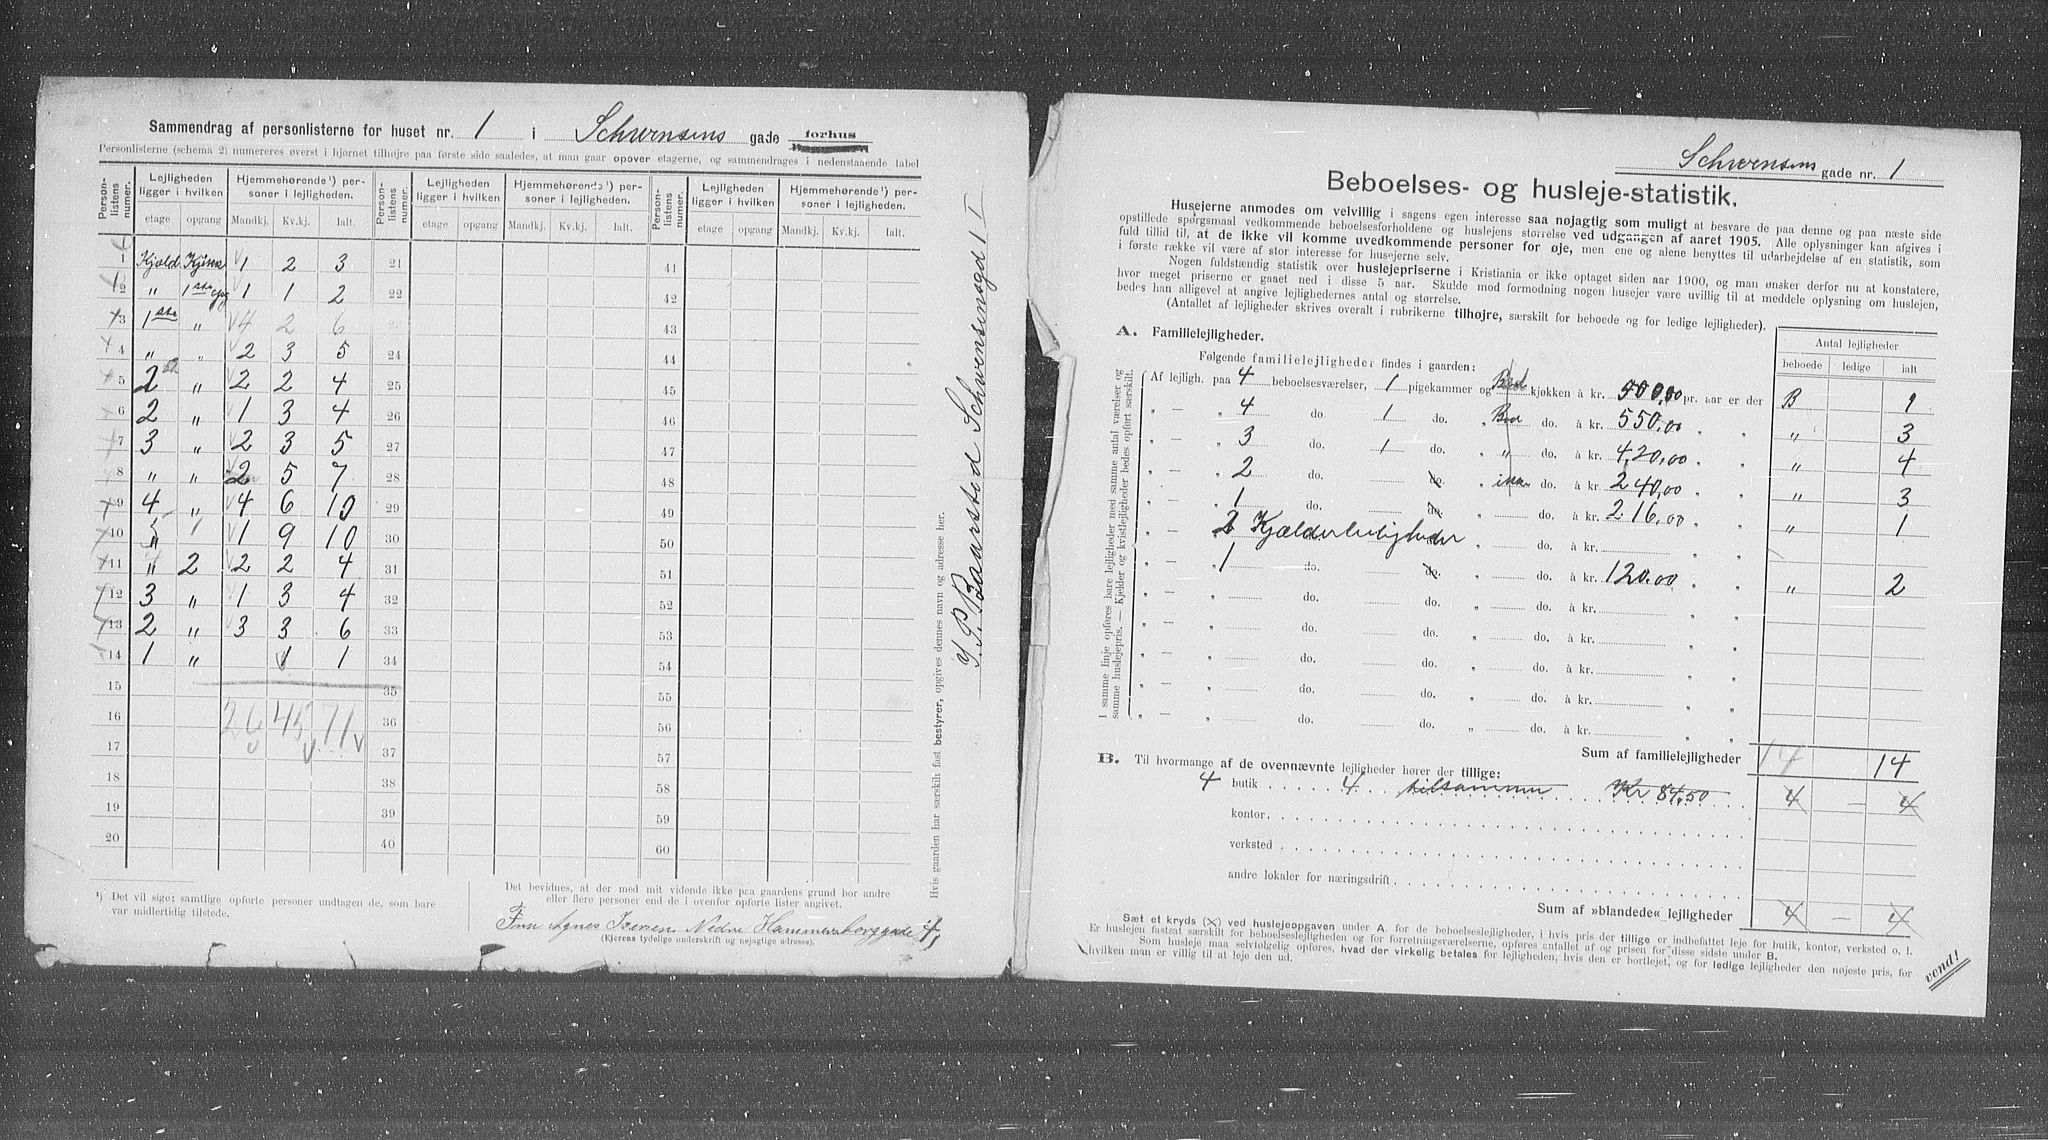 Sammendrag af personlisterne for huset nr. 1 i Schwensens gade forhus
Personlisterne (schema 2) numereres øverst i hjørnet tilhøjre paa første side saaledes, at man gaar opover etagerne, og sammendrages i nedenstaaende tabel
Person-listens numer. Lejligheden ligger i hvilken Hjemmehørende¹) personer i lejligheden. Person-listens numer. Lejligheden ligger i hvilken Hjemmehørende¹) personer i lejligheden. Person-listens numer. Lejligheden ligger i hvilken Hjemmehørende¹) personer i lejligheden.
etage opgang Mandkj. Kv.kj. Ialt. etage opgang Mandkj. Kv.kj. Ialt. etage opgang Mandkj. Kv.kj. Ialt.
1 Kjæld 1 2 3 21 41
2 " 1ste 1 1 2 22 42
3 1ste " 4 2 6 23 43
4 " " 2 3 5 24 44
5 2 " 2 2 4 25 45
6 2 " 1 3 4 26 46
7 3 " 2 3 5 27 47
8 " " 2 5 7 28 48
9 4 " 4 6 10 29 49
10 " 1 9 10 30 50
11 " 2 2 2 4 31 51
12 3 " 1 3 4 32 52
13 2 " 3 3 6 33 53
14 1 " 1 1 34 54
15 35 55
16 26 45 71 36 56
17 37 57
18 38 58
19 39 59
20 40 60
¹) Det vil sige: samtlige opførte personer undtagen de, som bare
var midlertidig tilstede.
Det bevidnes, at der med mit vidende ikke paa gaardens grund bor andre
eller flere personer end de i ovenfor opførte lister angivet.
Fru Agnes Iversen Nedre Hammersborggade 4,
(Ejerens tydelige underskrift og nøjagtige adresse).
Hvis gaarden har særskilt fast bestyrer, opgives dennes navn og adresse her.
Baarstad Schwensensgd 1 I
Schwensens gade nr. 1
Beboelses- og husleje-statistik.
Husejerne anmodes om velvillig i sagens egen interesse saa nøjagtig som muligt at besvare de paa denne og paa næste side
opstillede spørgsmaal vedkommende beboelsesforholdene og huslejens størrelse ved udgangen af aaret 1905. Alle oplysninger kan afgives i
fuld tillid til, at de ikke vil komme uvedkommende personer for øje, men ene og alene benyttes til udarbejdelse af en statistik, som
i første række vil være af stor interesse for husejerne selv.
Nogen fuldstændig statistik over huslejepriserne i Kristiania er ikke optaget siden aar 1900, og man ønsker derfor nu at konstatere,
hvor meget priserne er gaaet ned i disse 5 aar. Skulde mod formodning nogen husejer være uvillig til at meddele oplysning om huslejen,
bedes han alligevel at angive lejlighedernes antal og størrelse.
(Antallet af lejligheder skrives overalt i rubrikerne tilhøjre, særskilt for beboede og for ledige lejligheder).
A. Familielejligheder.
Følgende familielejligheder findes i gaarden:
Antal lejligheder
beboede ledige ialt
I samme linje opføres bare lejligheder med samme antal værelser og
samme huslejepris. — Kjelder og kvistlejligheder bedes opført særskilt.
Af lejligh. paa 4 beboelsesværelser, 1 pigekammer og Bad kjøkken à kr. 500,00 pr. aar er der B 1
" — " 4 do. 1 do. " do. à kr. 550,00 " " " 3
" — " 3 do. 1 do. " " do. à kr. 420,00 " " " 4
" — " 2 do. do. " do. à kr. 240,00 " " " 3
" — " 1 do. do. " do. à kr. 216,00 " " " 1
" — 2 Kjælderleiligheder " do. à kr. " "
" — " 1 do. do. " do. à kr. 120.00 " " " 2
" — " do. do. " do. à kr. " "
" — " do. do. " do. à kr. " "
" — " do. do. " do. à kr. " "
" — " do. do. " do. à kr. " "
" — " do. do. " do. à kr. " "
Sum af familielejligheder 14 14
B. Til hvormange af de ovennævnte lejligheder hører der tillige:
4 butik 4 tilsammen Kr 84,50 4 — 4
kontor
verksted
andre lokaler for næringsdrift
Sum af »blandede« lejligheder 4 — 4
Sæt et kryds (×) ved huslejeopgaven under A. for de beboelseslejligheder, i hvis pris der tillige er indbefattet leje for butik, kontor, verksted o. l.
Er huslejen fastsat særskilt for beboelseslejligheden og for forretningsværelserne, opføres antallet af og prisen for disse sidste under B.
Som husleje maa selvfølgelig opføres, hvad der virkelig betales for lejligheden, hvis den er bortlejet, og for ledige lejligheder den nøjeste pris, for
hvilken man er villig til at leje den ud.
vend!